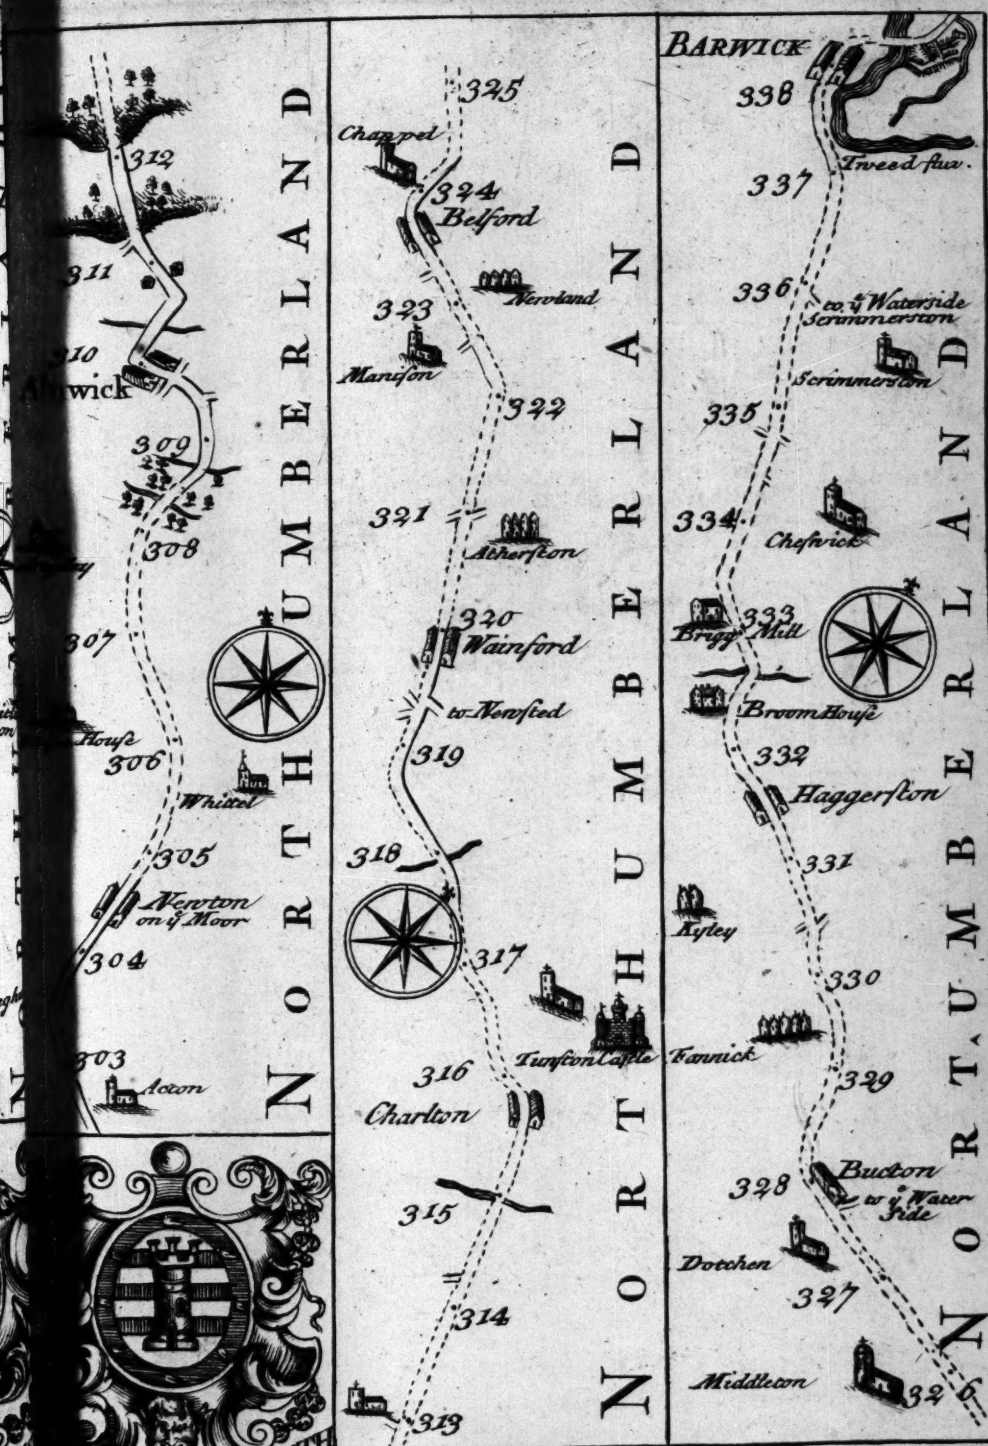 312
311
310
Alnwick
309
308
307
House
306
Whittel
305
Newton
on yͤ Moor
304
303
Acton
NORTHUMBERLAND
325
Chappel
324
Belford
Newland
323
Manison
322
321
Atherston
320
Wainford
to Newsted
319
318
317
Tunston Castle
316
Charlton
315
314
313
NORTHUMBERLAND
BARWICK
338
Tweed flux.
337
336
to yͤ Waterside
Scrimmerston
Scrimmerston
335
334
Cheswick
333
Brigg Mill
Broom House
332
Haggerston
331
Kyley
330
Fannick
329
Bucton
328
to yͤ Water
Side
Dotchen
327
Middleton
326
NORT‸UMBERLAND